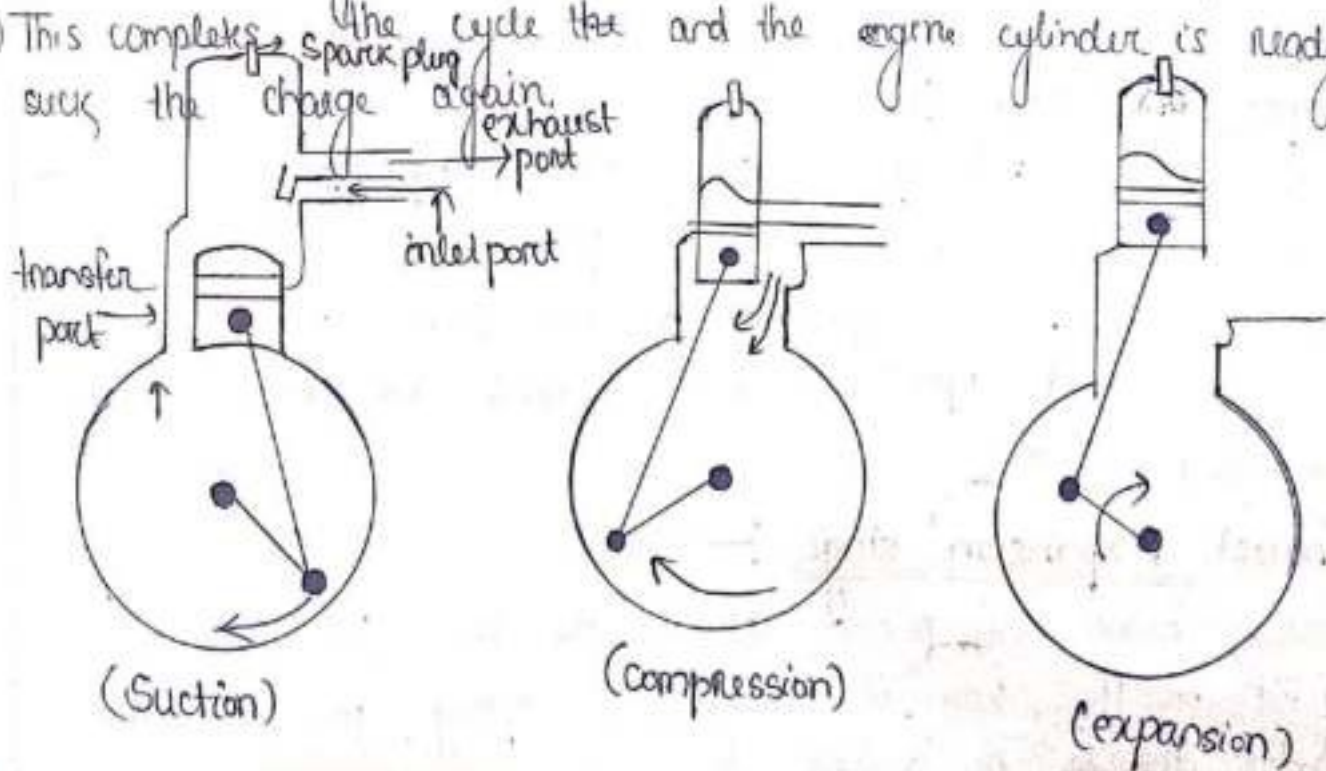 ) This completes the cycle the and the engine cylinder is
suck the charge again.
spark plug
exhaust
port
inlet port
transfer
port
(Suction)
(Compression)
(expansion)